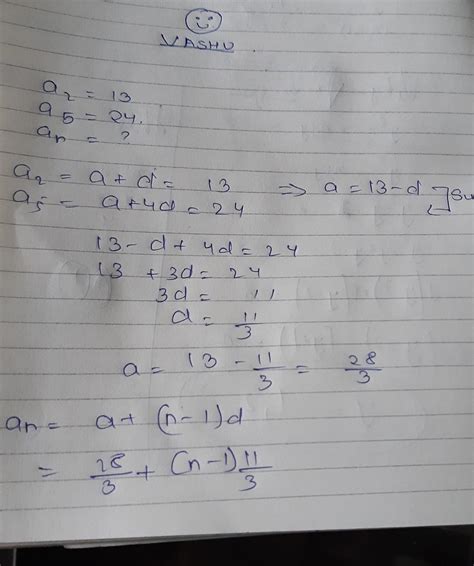 VASHU
a₂ = 13
a₅ = 24.
aₙ = ?
a₂ = a + d = 13 ⇒ a = 13 - d
a₅ = a + 4d = 24
13 - d + 4d = 24
13 + 3d = 24
3d = 11
d = 11/3
a = 13 - 11/3 = 28/3
aₙ = a + (n-1)d
= 28/3 + (n-1) 11/3